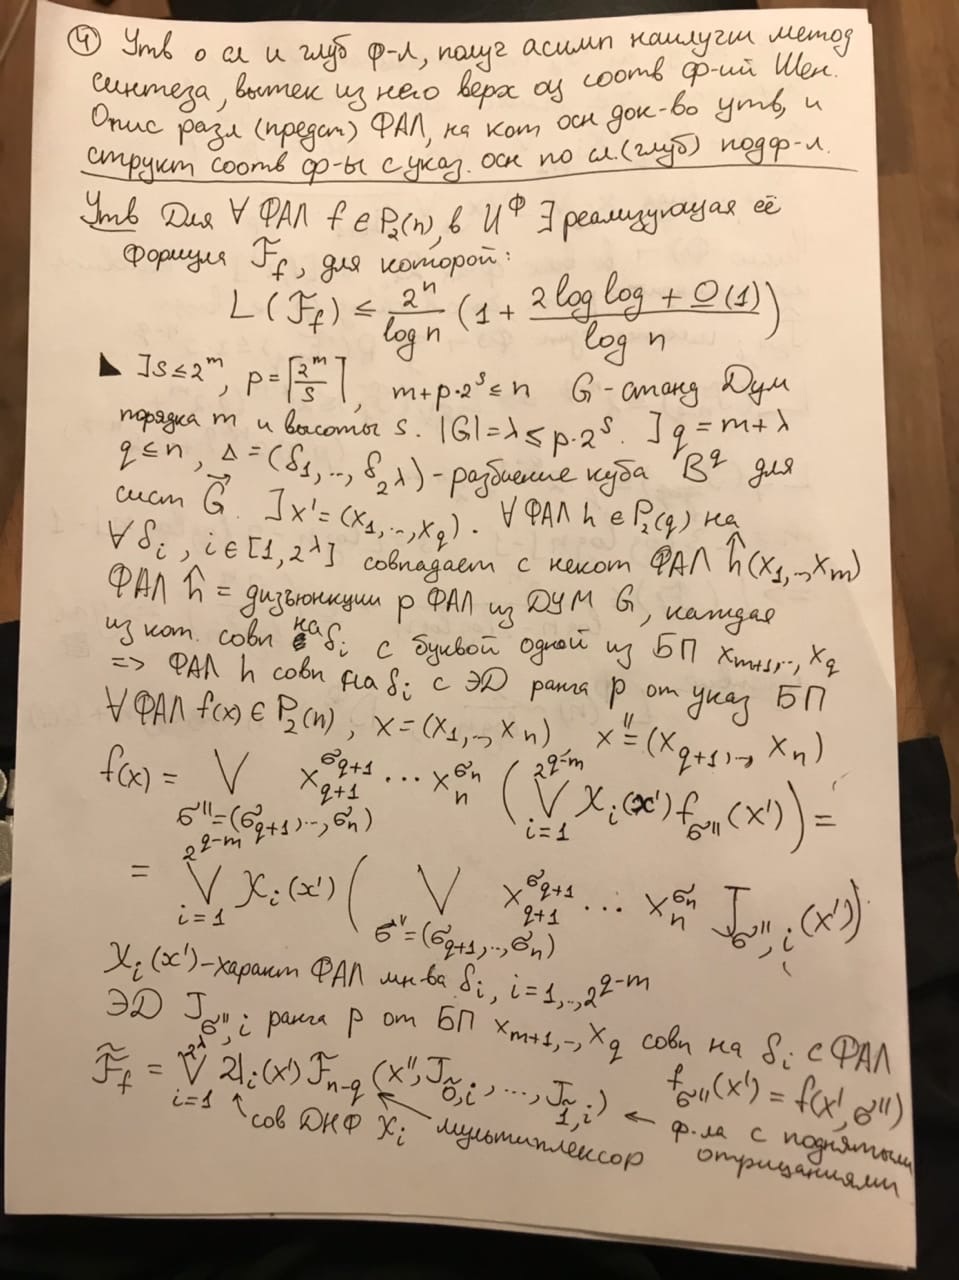 ④ Утв о сл и глуб ф-л, получ асимп наилучш метод
синтеза, вытек из него верх оц соотв ф-ий Шен.
Опис разл (предст) ФАЛ, на кот осн док-во утв, и
структ соотв ф-ы с указ. осн по сл.(глуб) подф-л.
Утв Для ∀ ФАЛ f ∈ P₂(n), в U^Ф ∃ реализующая её
формула ℱ_f, для которой:
L(ℱ_f) ≤ 2ⁿ/log n (1 + (2 log log + O(1))/log n)
▶ ]s ≤ 2^m, p = ⌈2^m/s⌉, m+p·2^s ≤ n G - станд Дум
порядка m и высоты s. |G| = λ ≤ p·2^s. ] q = m+λ
q ≤ n, Δ = (δ₁,..,δ_{2^λ}) - разбиение куба B^q для
сист G⃗. ]x' = (x₁,..,x_q). ∀ ФАЛ h ∈ P₂(q) на
∀ δ_i, i ∈ [1, 2^λ] совпадает с некот ФАЛ ĥ(x₁,..,x_m)
ФАЛ ĥ = дизъюнкции p ФАЛ из ДУМ G, каждая
из кот. совп на δ_i с буквой одной из БП x_{m+1},..,x_q
=> ФАЛ h совп на δ_i с ЭД ранга p от указ БП
∀ ФАЛ f(x) ∈ P₂(n), x = (x₁,..,x_n) x'' = (x_{q+1},..,x_n)
f(x) = ⋁_{σ''=(σ_{q+1},..,σ_n)} x_{q+1}^{σ_{q+1}} ... x_n^{σ_n} (⋁_{i=1}^{2^{q-m}} χ_i(x') f_{σ''}(x')) =
= ⋁_{i=1}^{2^{q-m}} χ_i(x') (⋁_{σ''=(σ_{q+1},..,σ_n)} x_{q+1}^{σ_{q+1}} ... x_n^{σ_n} J_{σ'',i}(x'))
χ_i(x') - характ ФАЛ мн-ва δ_i, i = 1,..,2^{q-m}
ЭД J_{σ'',i} ранга p от БП x_{m+1},..,x_q совп на δ_i с ФАЛ
f_{σ''}(x') = f(x', σ'')
ℱ̃_f = ⋁_{i=1}^{2^λ} 𝔄_i(x') ℱ_{n-q}(x'', J_{0̃,i},...,J_{1̃,i}) ← ф-ла с поднятыми
↑ сов ДНФ χ_i ↖ мультиплексор отрицаниями